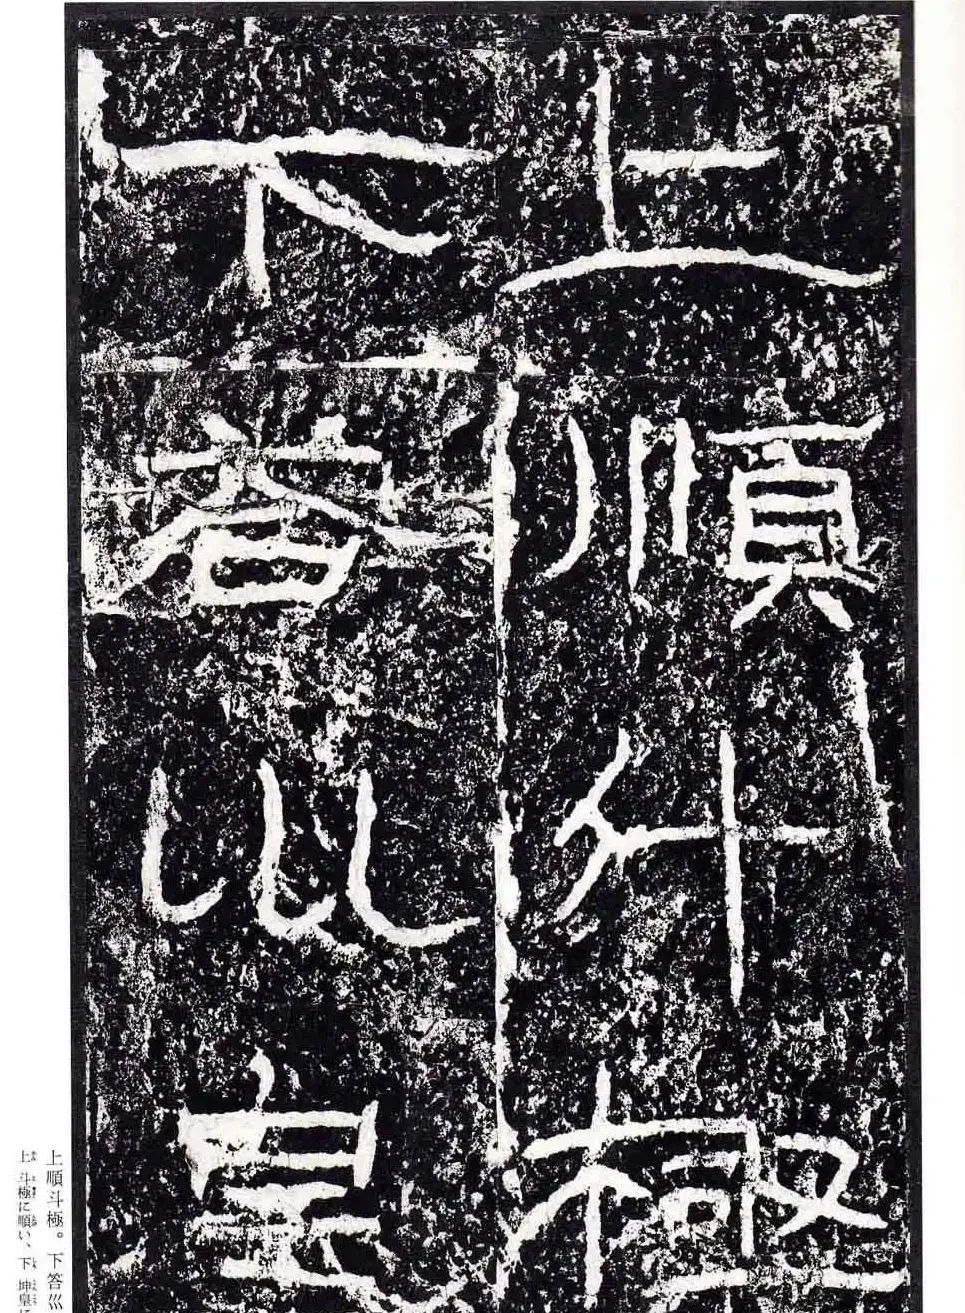 上順斗極
下答巛皇
上順斗極。下答巛
上斗極に順い、下坤皇に